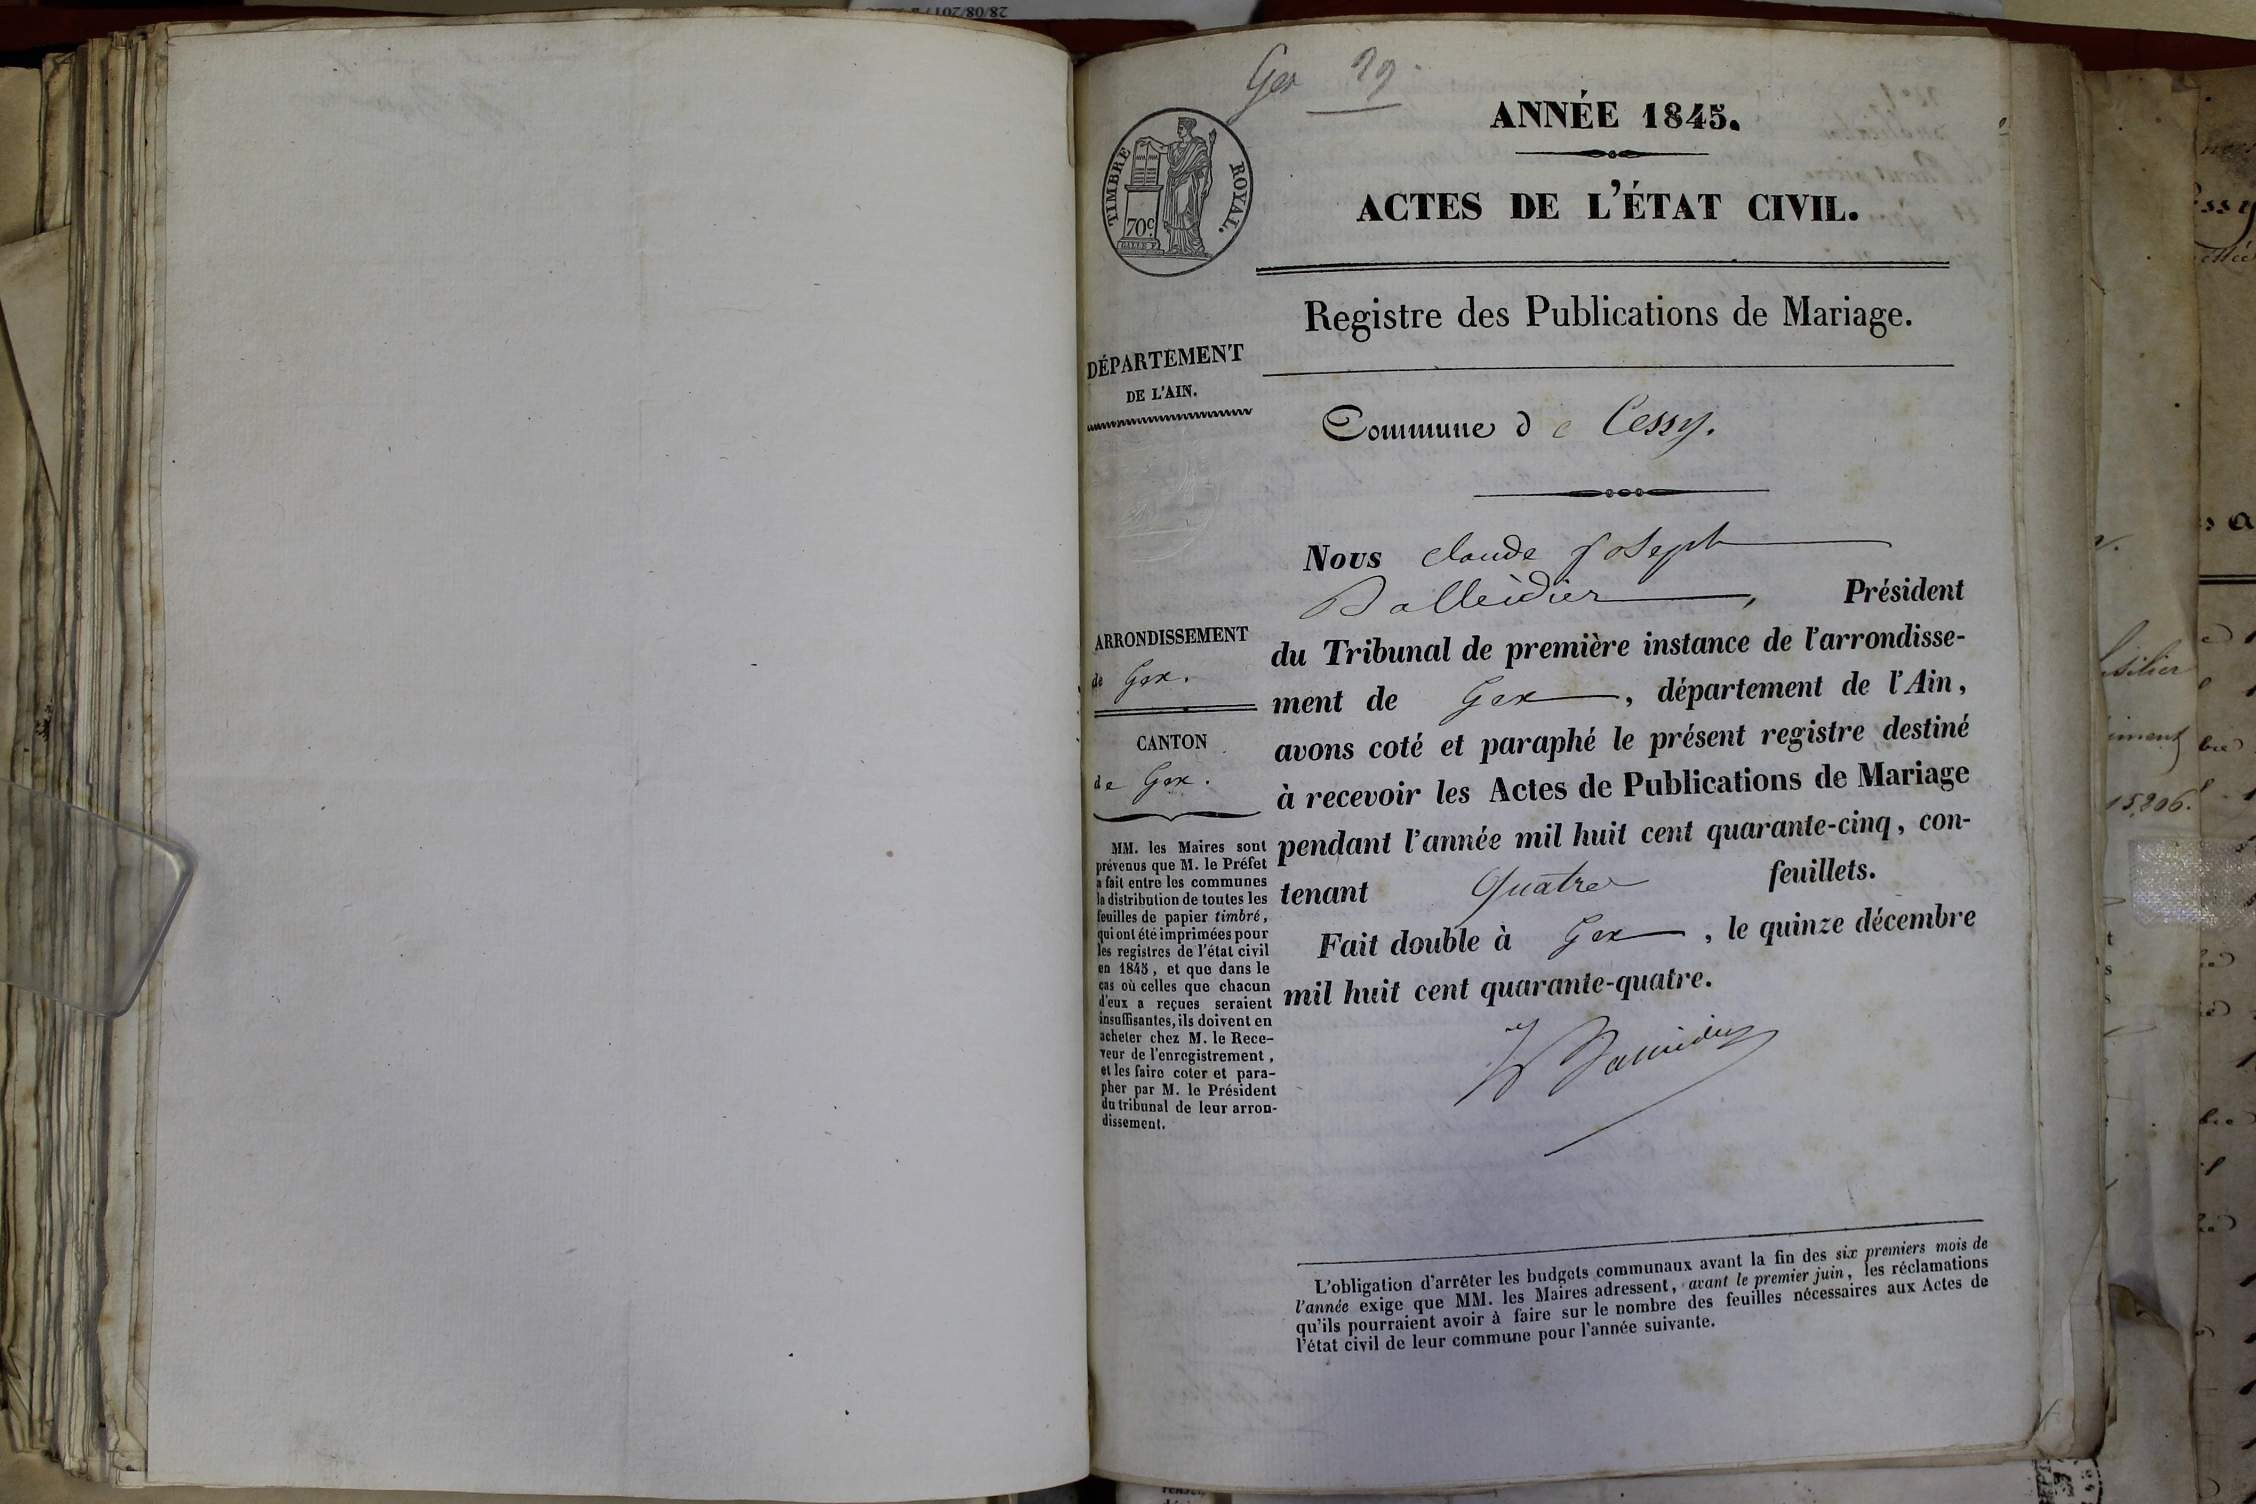 Gex 29
ANNÉE 1845.
TIMBRE ROYAL.
70c.
ACTES DE L'ÉTAT CIVIL.
Registre des Publications de Mariage.
DÉPARTEMENT
DE L'AIN.
Commune de Cessy.
Nous Claude Joseph
Balleidier, Président
du Tribunal de première instance de l'arrondisse-
ment de Gex, département de l'Ain,
avons coté et paraphé le présent registre destiné
à recevoir les Actes de Publications de Mariage
pendant l'année mil huit cent quarante-cinq, con-
tenant Quatre feuillets.
Fait double à Gex, le quinze décembre
mil huit cent quarante-quatre.
ARRONDISSEMENT
de Gex.
CANTON
de Gex.
MM. les Maires sont
prévenus que M. le Préfet
a fait entre les communes
la distribution de toutes les
feuilles de papier timbré,
qui ont été imprimées pour
les registres de l'état civil
en 1845, et que dans le
cas où celles que chacun
d'eux a reçues seraient
insuffisantes, ils doivent en
acheter chez M. le Rece-
veur de l'enregistrement,
et les faire coter et para-
pher par M. le Président
du tribunal de leur arron-
dissement.
L'obligation d'arrêter les budgets communaux avant la fin des six premiers mois de
l'année exige que MM. les Maires adressent, avant le premier juin, les réclamations
qu'ils pourraient avoir à faire sur le nombre des feuilles nécessaires aux Actes de
l'état civil de leur commune pour l'année suivante.